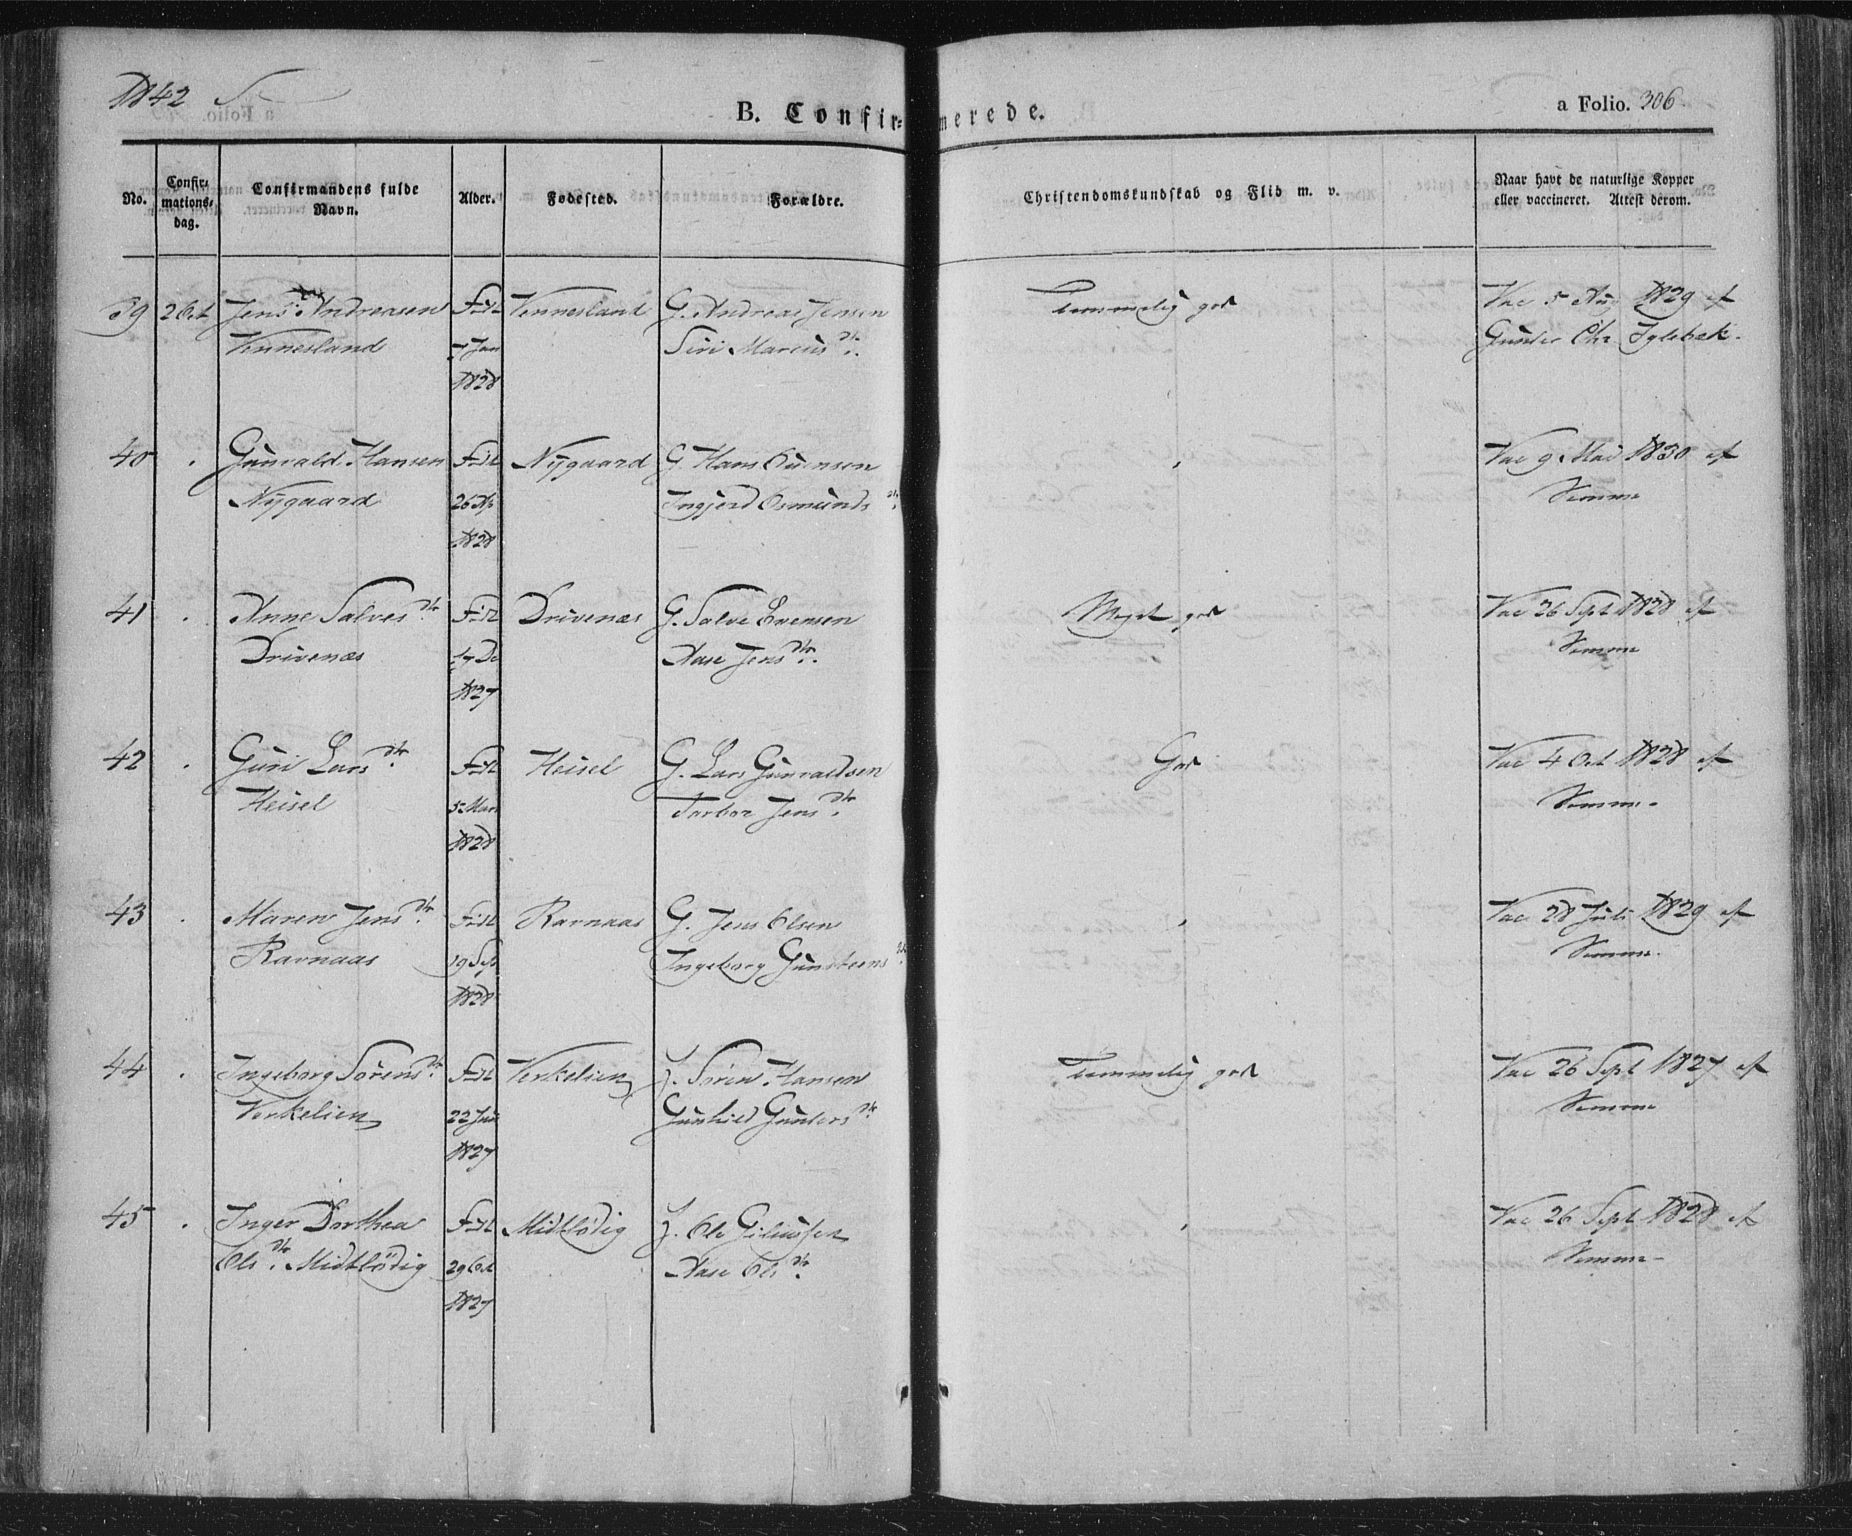 1842
B. Confirmerede.
a Folio. 306
No.
Confirmationsdag.
Confirmandens fulde Navn.
Alder.
Fødested.
Forældre.
Christendomskundskab og Flid m. v.
Naar havt de naturlige Kopper eller vaccineret. Attest derom.
39 2 Oct Jens Andreasen Vennesland G. Andreas Jensen Temmelig god Vac 5 Aug 1829 af
Vennesland 7 Jan Siri Marcusdtr. Gunder Chr Iglebæk.
1828
40 Gunvald Hansen Nygaard G. Hans Evensen Vac 9 Mai 1830 af
Nygaard 26 Ap Ingjerd Osmundsdtr. Samme
1828
41 Anne Salvesdtr. Drivenæs G. Salve Evensen Meget god Vac 26 Sept 1828 af
Drivenæs 17 De Aase Jensdtr. Samme
1827
42 Guri Larsdtr. Heisel G. Lars Gunvaldsen God Vac 4 Oct 1828 af
Heisel 5 Mar Torbor Jensdtr. Samme
1828
43 Maren Jensdtr. Ravnaas G. Jens Olsen Vac 28 Juli 1829 af
Ravnaas 19 Sep Ingeborg Gunsteensdtr. Samme.
1828
44 Ingeborg Sørensdtr. Verkelien J. Søren Hansen Temmelig god Vac 26 Sept 1827 af
Verkelien 22 Gunhild Gundersdtr. Samme
1827
45 Inger Dorthea Midtbødig J. Ole Vac 26 Sept 1828 af
Olsdtr. Midtbødig 29 Oct Aase Olsdtr. Samme
1827